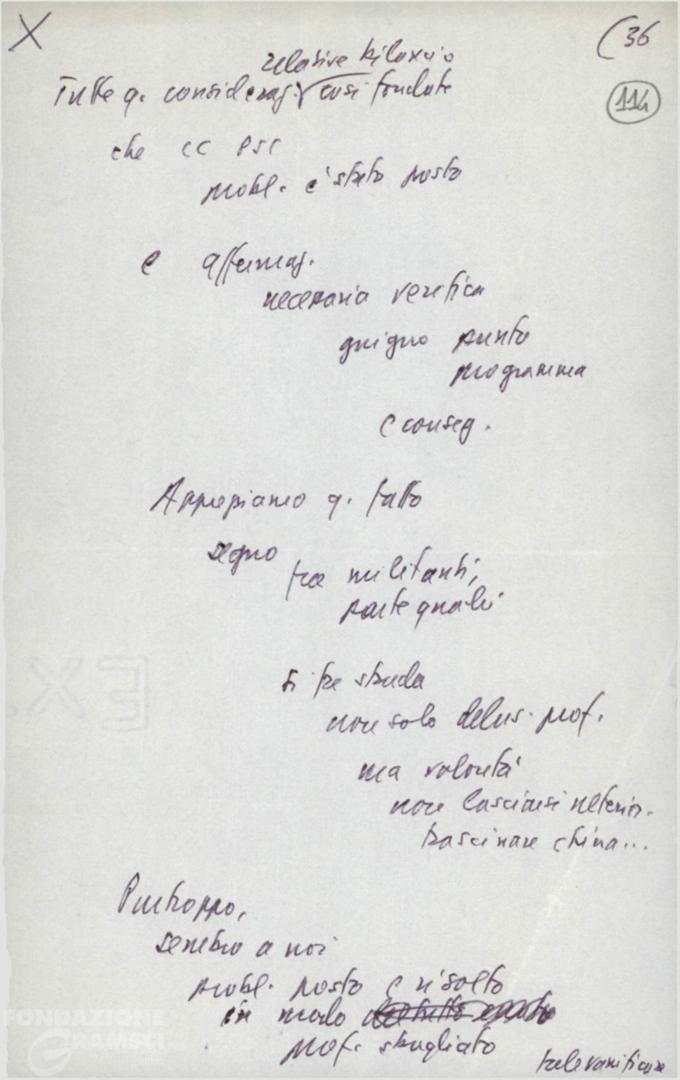 X
(36
114
relative bilancio
Tutte q. consideraz. così fondate
che CC PSI
probl. è stato posto
e affermaz.
necessaria verifica
giugno punto
programma
e conseg.
Apprezziamo q. fatto
segno
tra militanti,
parte quadri
si fa strada
non solo delus. prof.
ma volontà
non lasciarsi ulterior.
trascinare china...
Purtroppo,
sembra a noi
probl. posto e risolto
in modo
prof. sbagliato
tale vanificare
FONDAZIONE
GRAMSCI